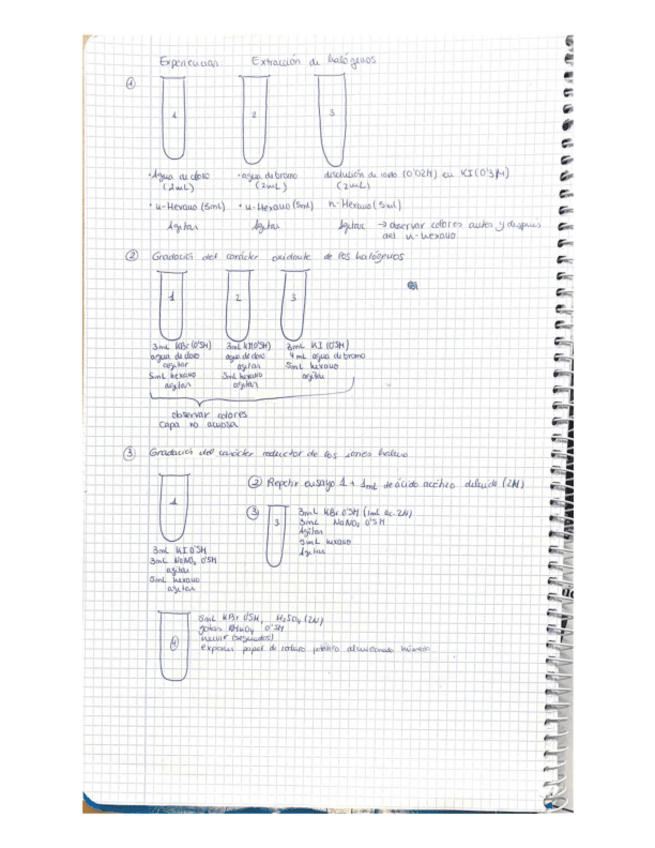 Experiencia: Extracción de halógenos
①
1 2 3
· Agua de cloro · agua de bromo disolución de iodo (0'02M) en KI (0'3M)
(2mL) (2mL) (2mL)
· n-Hexano (5mL) · n-Hexano (5ml) n-Hexano (5ml)
Agitar Agitar Agitar → observar colores antes y después
del n-hexano
② Gradación del carácter oxidante de los halógenos
1 2 3
3mL KBr (0'5M) 3mL KI (0'5M) 3mL KI (0'5M)
agua de cloro agua de cloro 4mL agua de bromo
agitar agitar 5mL hexano
5mL hexano 5mL hexano agitar
agitar agitar
observar colores
capa no acuosa
③ Gradación del carácter reductor de los iones haluro
1
② Repetir ensayo 1 + 1mL de ácido acético diluido (2N)
③ 3
3mL KBr 0'5M (1mL ac. 2N)
3mL NaNO₂ 0'5M
Agitar
5mL hexano
Agitar
3mL KI 0'5M
3mL NaNO₂ 0'5M
agitar
5mL hexano
agitar
④
5mL KBr 0'5M, H₂SO₄ (2N)
gotas KMnO₄ 0'5M
hervir (segundos)
exponer papel de ioduro potásico almidonado húmedo